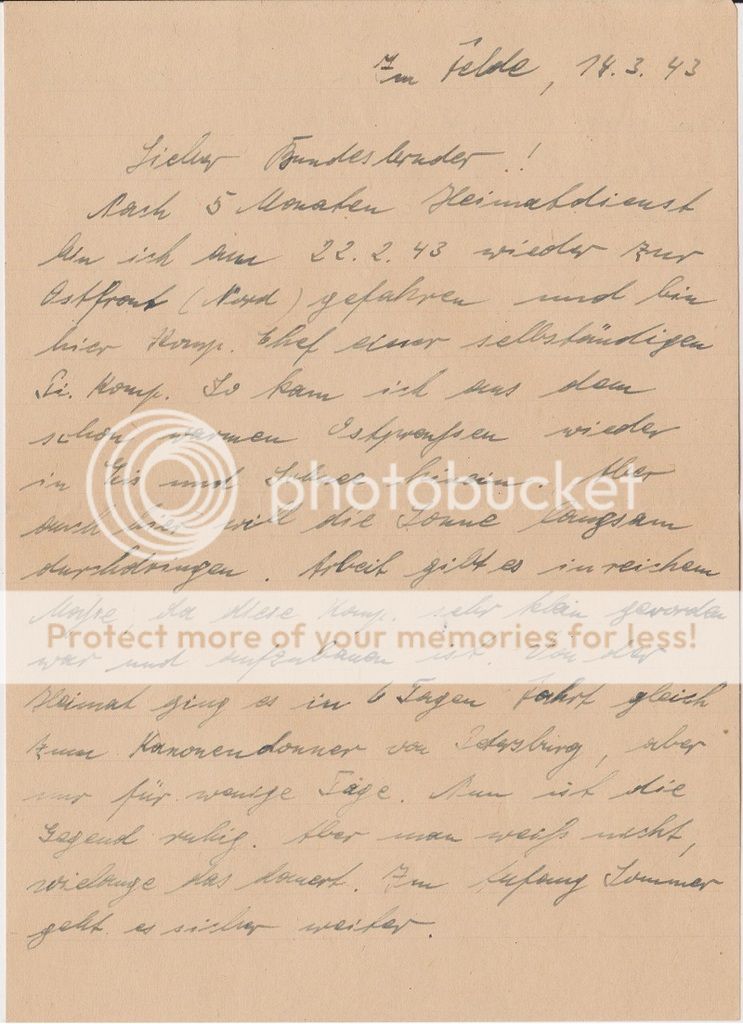 Im Felde, 14.3.43
Lieber Bundesbruder!
Nach 5 Monaten Heimatdienst
bin ich am 22.2.43 wieder zur
Ostfront (Nord) gefahren und bin
hier Komp. Chef einer selbständigen
Komp. So kam ich aus dem
schon warmen Ostpreußen wieder
in Eis und Schnee hinein. Aber
photobucket
auch hier will die Sonne langsam
durchdringen. Arbeit gibt es in reichem
Maße, da diese Komp. sehr klein geworden
Protect more of your memories for less!
war und aufzubauen ist. Von der
Heimat ging es in 6 Tagen Fahrt gleich
zum Kanonendonner von Petersburg, aber
nur für wenige Tage. Nun ist die
Gegend ruhig. Aber man weiß nicht,
wielange das dauert. Im Anfang Sommer
geht es sicher weiter.